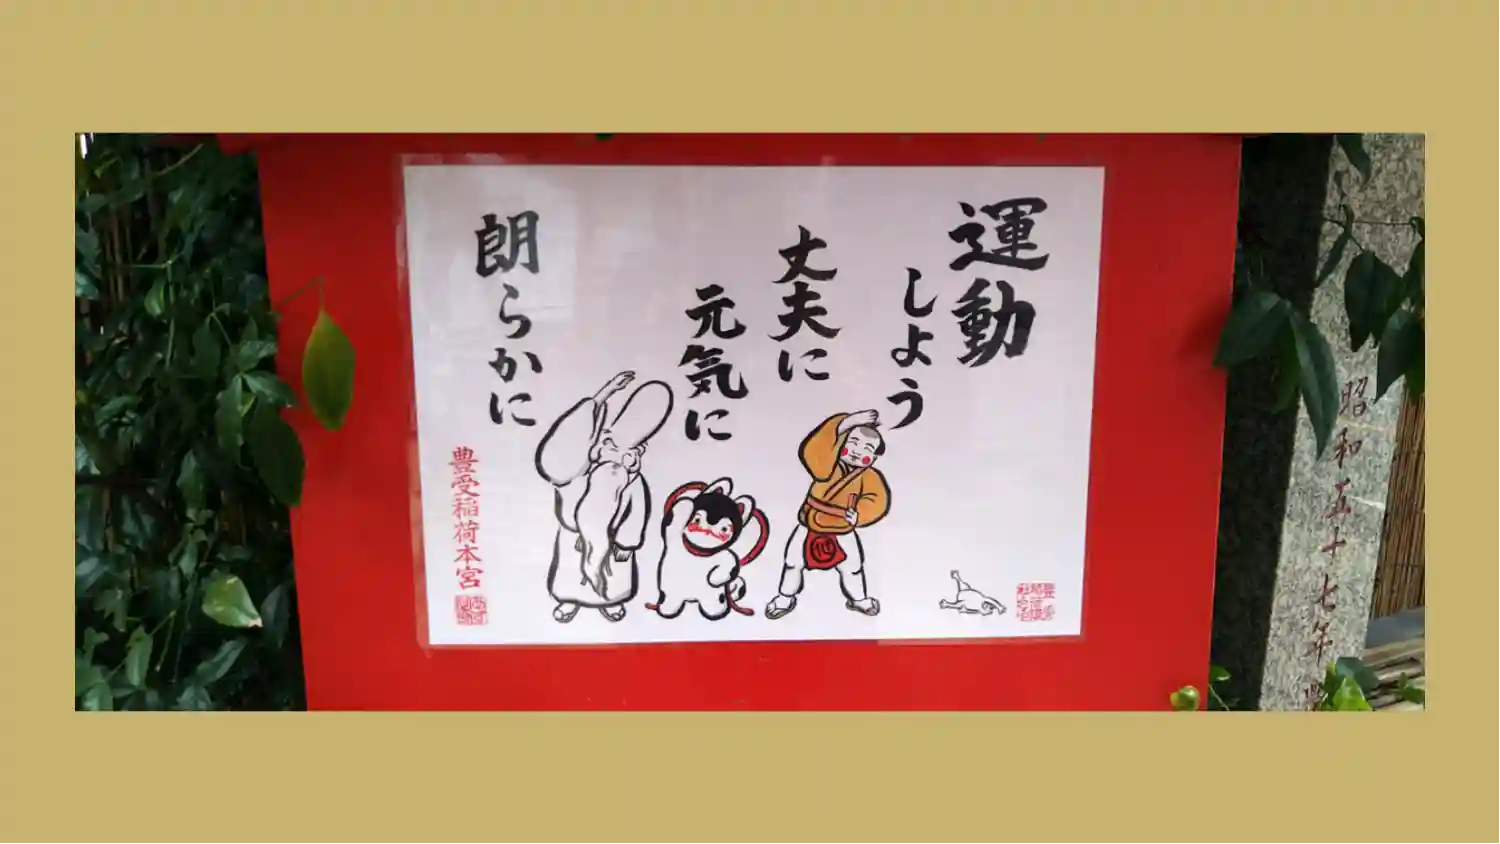 運動
しよう
丈夫に
元気に
朗らかに
豊受稲荷本宮
昭和五十七年